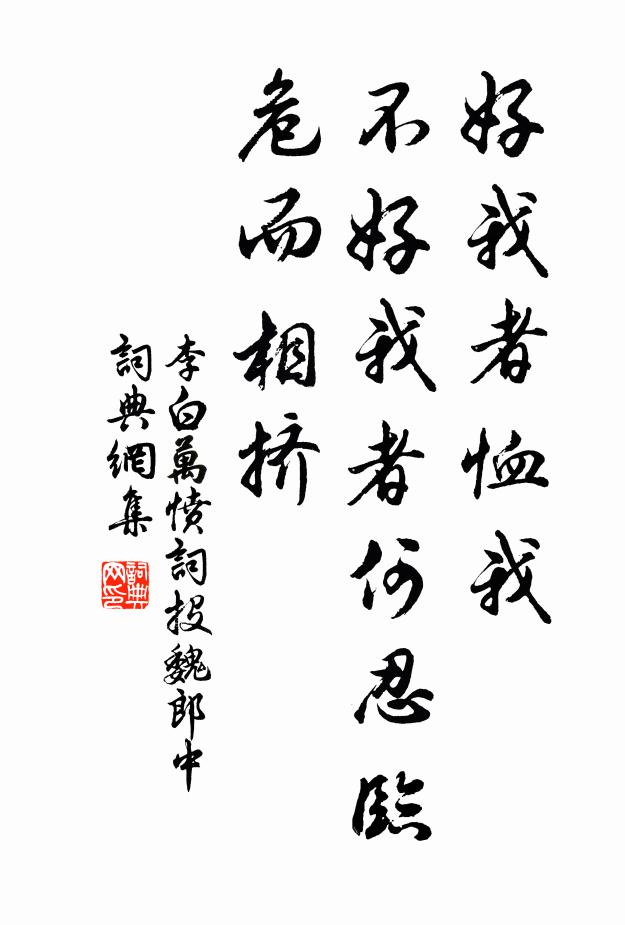 好我者恤我
不好我者何忍臨
危而相挤
李白萬憤詞投魏郎中
詞典網集
詞典
网印